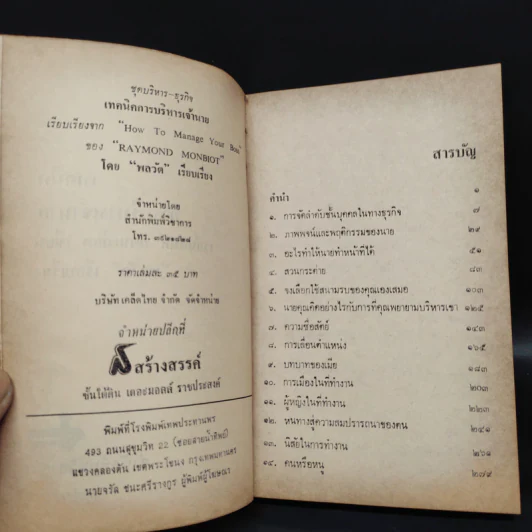 ชุดบริหาร-ธุรกิจ
เทคนิคการบริหารเจ้านาย
เรียบเรียงจาก "How To Manage Your Boss"
ของ "RAYMOND MONBIOT"
โดย "พลวัต" เรียบเรียง
จำหน่ายโดย
สำนักพิมพ์วิชาการ
โทร. ๓๙๒๑๘๒๘
ราคาเล่มละ ๓๕ บาท
บริษัท เคล็ดไทย จำกัด จัดจำหน่าย
จำหน่ายปลีกที่
สร้างสรรค์
ชั้นใต้ดิน เดอะมอลล์ ราชประสงค์
พิมพ์ที่โรงพิมพ์เทพประทานพร
493 ถนนสุขุมวิท 22 (ซอยสายน้ำทิพย์)
แขวงคลองตัน เขตพระโขนง กรุงเทพมหานคร
นายจรัล ชนะศรีรางกูร ผู้พิมพ์ผู้โฆษณา
สารบัญ
คำนำ ๑
๑. การจัดลำดับชั้นบุคคลในทางธุรกิจ ๗
๒. ภาพพจน์และพฤติกรรมของนาย ๒๙
๓. อะไรทำให้นายทำหน้าที่ได้ ๕๑
๔. สวนกระต่าย ๘๓
๕. จงเลือกใช้สนามรบของคุณเองเสมอ ๑๐๓
๖. นายคุณคิดอย่างไรกับการที่คุณพยายามบริหารเขา ๑๒๕
๗. ความซื่อสัตย์ ๑๔๓
๘. การเลื่อนตำแหน่ง ๑๖๕
๙. บทบาทของเมีย ๑๘๓
๑๐. การเมืองในที่ทำงาน ๒๐๓
๑๑. ผู้หญิงในที่ทำงาน ๒๒๓
๑๒. หนทางสู่ความสมปรารถนาของคน ๒๔๑
๑๓. นิสัยในการทำงาน ๒๖๑
๑๔. คนหรือหนู ๒๗๙